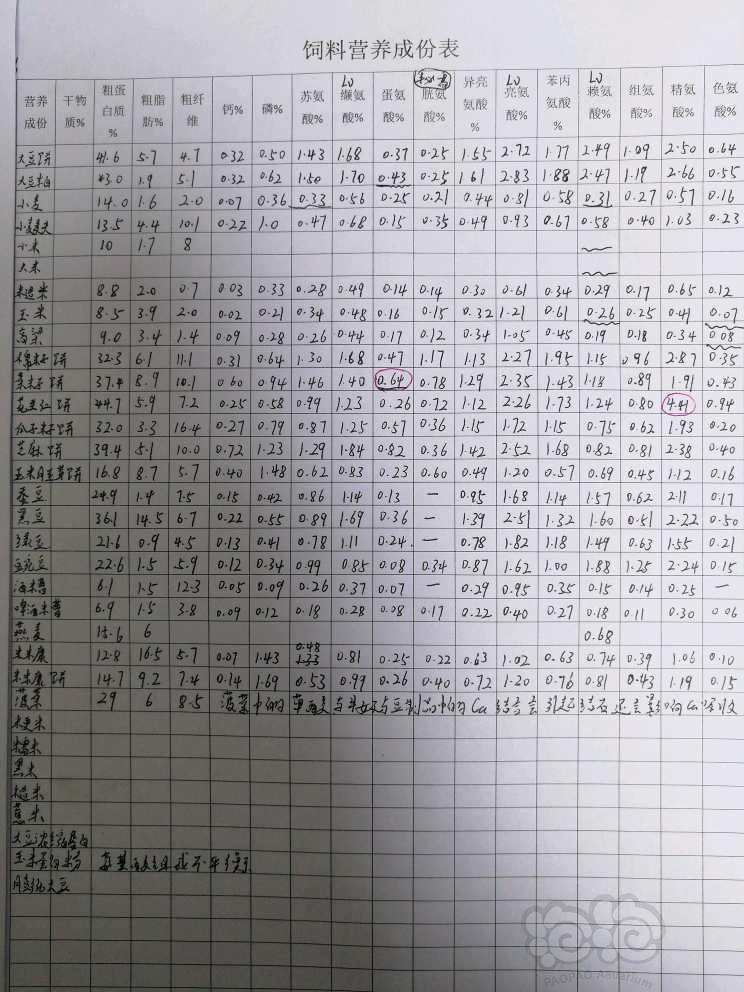 饲料营养成份表
营养成份 干物质% 粗蛋白质% 粗脂肪% 粗纤维 钙% 磷% 苏氨酸% 缬氨酸% 蛋氨酸% 胱氨酸% 异亮氨酸% 亮氨酸% 苯丙氨酸% 赖氨酸% 组氨酸% 精氨酸% 色氨酸%
大豆饼 41.6 5.7 4.7 0.32 0.50 1.43 1.68 0.37 0.25 1.55 2.72 1.77 2.49 1.09 2.50 0.64
大豆粕 43.0 1.9 5.1 0.32 0.62 1.50 1.70 0.43 0.25 1.61 2.83 1.88 2.47 1.19 2.66 0.55
小麦 14.0 1.6 2.0 0.07 0.36 0.33 0.56 0.25 0.21 0.44 0.81 0.58 0.31 0.27 0.57 0.16
小麦麸 13.5 4.4 10.1 0.22 1.0 0.47 0.68 0.15 0.35 0.49 0.93 0.67 0.58 0.40 1.03 0.23
小米 10 1.7 8
大米
糙米 8.8 2.0 0.7 0.03 0.33 0.28 0.49 0.14 0.14 0.30 0.61 0.34 0.29 0.17 0.65 0.12
玉米 8.5 3.9 2.0 0.02 0.21 0.34 0.48 0.16 0.15 0.32 1.21 0.61 0.26 0.25 0.41 0.07
高粱 9.0 3.4 1.4 0.09 0.28 0.26 0.44 0.17 0.12 0.34 1.05 0.45 0.19 0.18 0.34 0.08
棉籽饼 32.3 6.1 11.1 0.31 0.64 1.30 1.68 0.47 1.17 1.13 2.27 1.95 1.15 0.96 2.87 0.35
菜籽饼 37.4 8.9 10.1 0.60 0.94 1.46 1.40 0.64 0.78 1.29 2.35 1.43 1.18 0.89 1.91 0.43
花生仁饼 44.7 5.9 7.2 0.25 0.58 0.99 1.23 0.26 0.72 1.12 2.26 1.73 1.24 0.80 4.41 0.94
瓜子籽饼 32.0 3.3 16.4 0.27 0.79 0.87 1.25 0.57 0.36 1.15 1.72 1.15 0.75 0.62 1.93 0.20
芝麻饼 39.4 5.1 10.0 0.72 1.23 1.29 1.84 0.82 0.36 1.42 2.52 1.68 0.82 0.81 2.38 0.40
玉米胚芽饼 16.8 8.7 5.7 0.40 1.48 0.62 0.83 0.23 0.60 0.49 1.20 0.57 0.69 0.45 1.12 0.16
蚕豆 24.9 1.4 7.5 0.15 0.42 0.86 1.14 0.13 — 0.95 1.68 1.14 1.57 0.62 2.11 0.17
黑豆 36.1 14.5 6.7 0.22 0.55 0.89 1.69 0.36 — 1.39 2.51 1.32 1.60 0.51 2.22 0.50
绿豆 21.6 0.9 4.5 0.13 0.41 0.78 1.11 0.24 — 0.78 1.82 1.18 1.49 0.63 1.55 0.21
豌豆 22.6 1.5 5.9 0.12 0.34 0.99 0.85 0.08 0.34 0.87 1.62 1.00 1.88 1.25 2.24 0.15
酒糟 6.1 1.5 12.3 0.05 0.09 0.26 0.37 0.07 — 0.29 0.95 0.35 0.15 0.14 0.25 —
啤酒糟 6.9 1.5 3.8 0.09 0.12 0.18 0.28 0.08 0.17 0.22 0.40 0.27 0.18 0.11 0.30 0.06
燕麦 15.6 6 0.68
米糠 12.8 16.5 5.7 0.07 1.43 0.48 0.81 0.25 0.22 0.63 1.02 0.63 0.74 0.39 1.06 0.10
米糠饼 14.7 9.2 7.4 0.14 1.69 0.53 0.99 0.26 0.40 0.72 1.20 0.76 0.81 0.43 1.19 0.15
菠菜 29 6 8.5 菠菜中的草酸与 与豆制品中的Ca结合会引起结石还会影响Ca吸收
粳米
糯米
黑米
糙米
薏米
大豆浓缩蛋白
玉米蛋白粉 氨基酸组成不平衡
膨化大豆
PAOPAO Aquarium